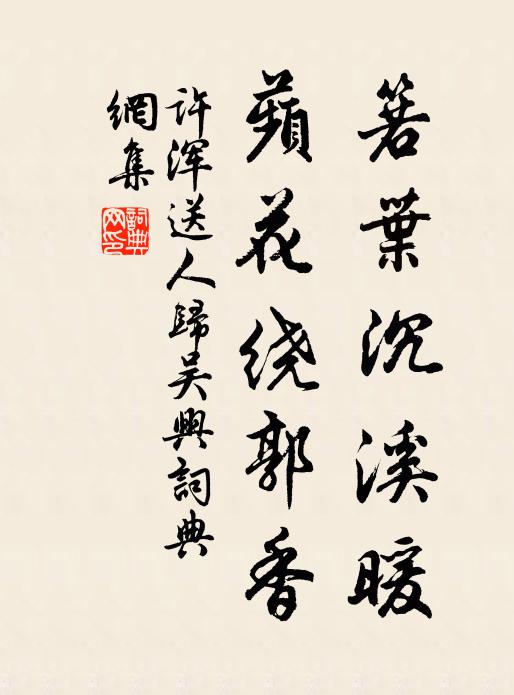 箬葉沉溪暖
蘋花绕郭香
许浑送人歸吴興詞典
網集
詞典网印